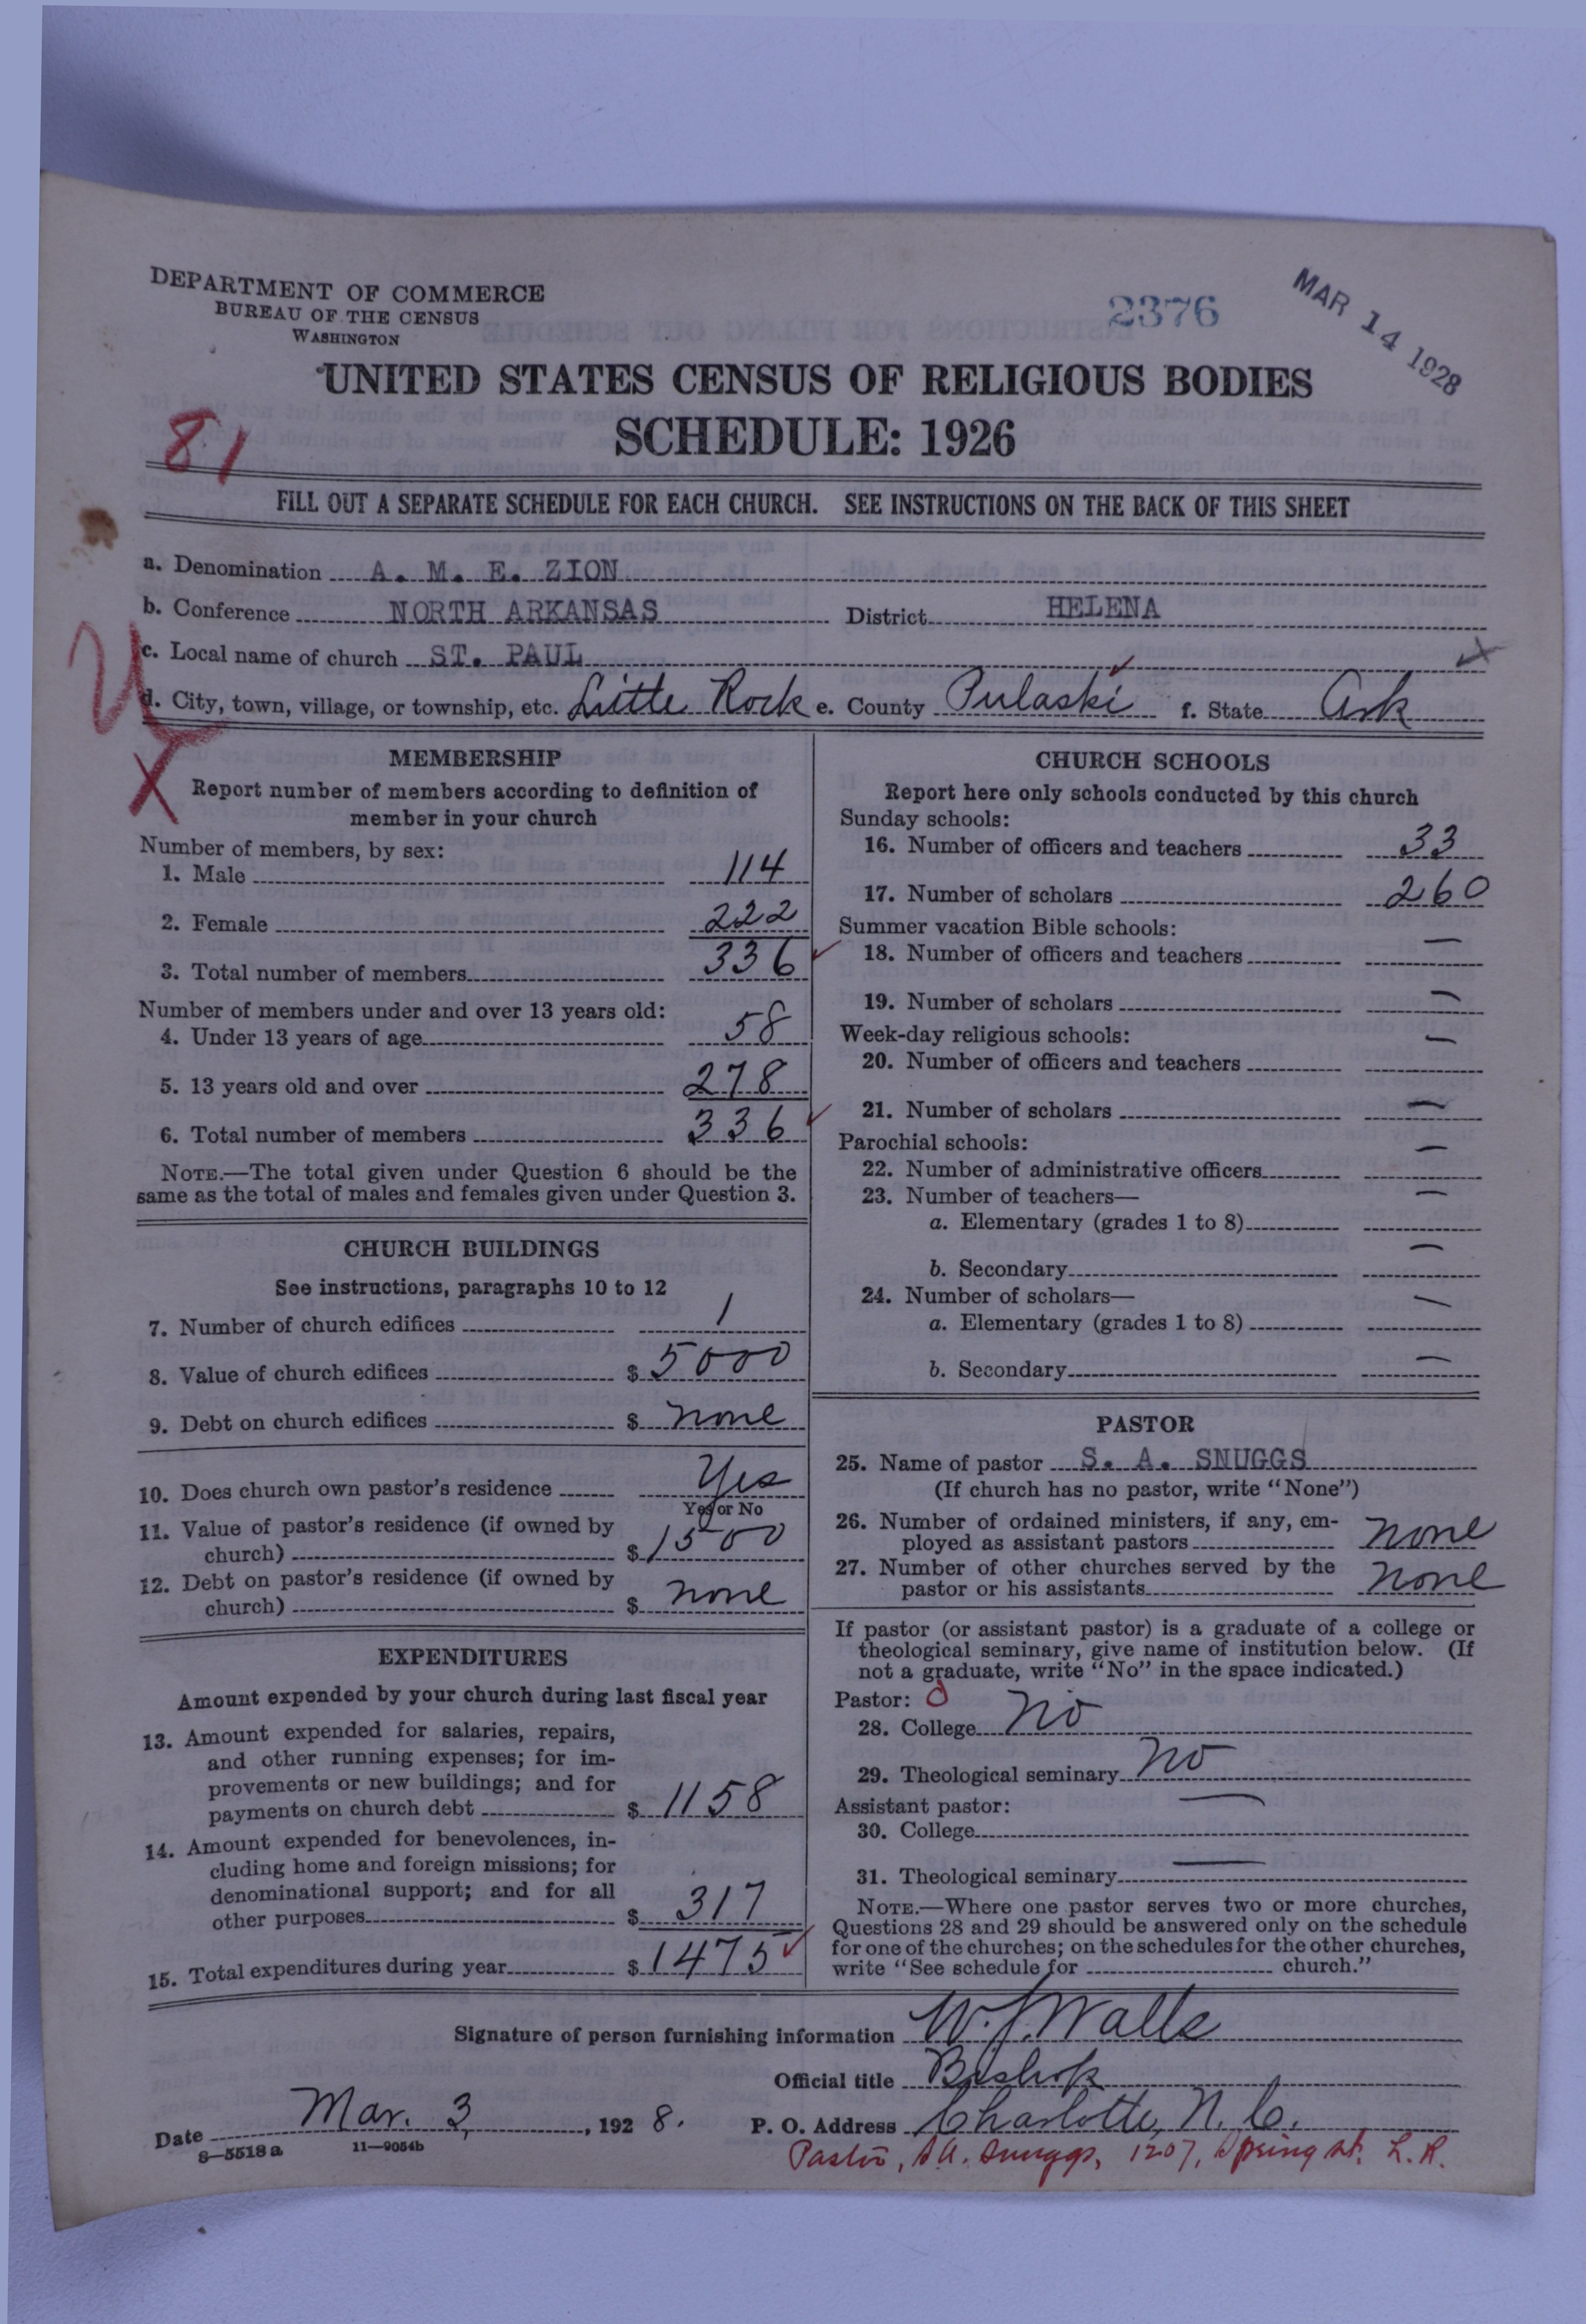 DEPARTMENT OF COMMERCE
BUREAU OF THE CENSUS
WASHINGTON
2376
MAR 14 1928
UNITED STATES CENSUS OF RELIGIOUS BODIES
SCHEDULE: 1926
81
FILL OUT A SEPARATE SCHEDULE FOR EACH CHURCH. SEE INSTRUCTIONS ON THE BACK OF THIS SHEET
a. Denomination A. M. E. ZION
b. Conference NORTH ARKANSAS District HELENA
c. Local name of church ST. PAUL
d. City, town, village, or township, etc. Little Rock e. County Pulaski f. State Ark
U
X
MEMBERSHIP
Report number of members according to definition of
member in your church
Number of members, by sex:
1. Male 114
2. Female 222
3. Total number of members 336
Number of members under and over 13 years old:
4. Under 13 years of age 58
5. 13 years old and over 278
6. Total number of members 336
NOTE.—The total given under Question 6 should be the
same as the total of males and females given under Question 3.
CHURCH BUILDINGS
See instructions, paragraphs 10 to 12
7. Number of church edifices 1
8. Value of church edifices $ 5000
9. Debt on church edifices $ none
10. Does church own pastor's residence Yes
Yes or No
11. Value of pastor's residence (if owned by
church) $ 1500
12. Debt on pastor's residence (if owned by
church) $ none
EXPENDITURES
Amount expended by your church during last fiscal year
13. Amount expended for salaries, repairs,
and other running expenses; for im-
provements or new buildings; and for
payments on church debt $ 1158
14. Amount expended for benevolences, in-
cluding home and foreign missions; for
denominational support; and for all
other purposes $ 317
15. Total expenditures during year $ 1475
CHURCH SCHOOLS
Report here only schools conducted by this church
Sunday schools:
16. Number of officers and teachers 33
17. Number of scholars 260
Summer vacation Bible schools:
18. Number of officers and teachers —
19. Number of scholars —
Week-day religious schools:
20. Number of officers and teachers —
21. Number of scholars —
Parochial schools:
22. Number of administrative officers —
23. Number of teachers—
a. Elementary (grades 1 to 8) —
b. Secondary —
24. Number of scholars—
a. Elementary (grades 1 to 8) —
b. Secondary —
PASTOR
25. Name of pastor S. A. SNUGGS
(If church has no pastor, write "None")
26. Number of ordained ministers, if any, em-
ployed as assistant pastors none
27. Number of other churches served by the
pastor or his assistants none
If pastor (or assistant pastor) is a graduate of a college or
theological seminary, give name of institution below. (If
not a graduate, write "No" in the space indicated.)
Pastor: 0
28. College No
29. Theological seminary No
Assistant pastor:
30. College —
31. Theological seminary —
NOTE.—Where one pastor serves two or more churches,
Questions 28 and 29 should be answered only on the schedule
for one of the churches; on the schedules for the other churches,
write "See schedule for church."
Signature of person furnishing information W. J. Walls
Official title Bishop
Date Mar. 3, 1928. P. O. Address Charlotte, N. C.
8—5518a 11—9054b
Pastor, S.A. Snuggs, 1207, Spring st. L. R.